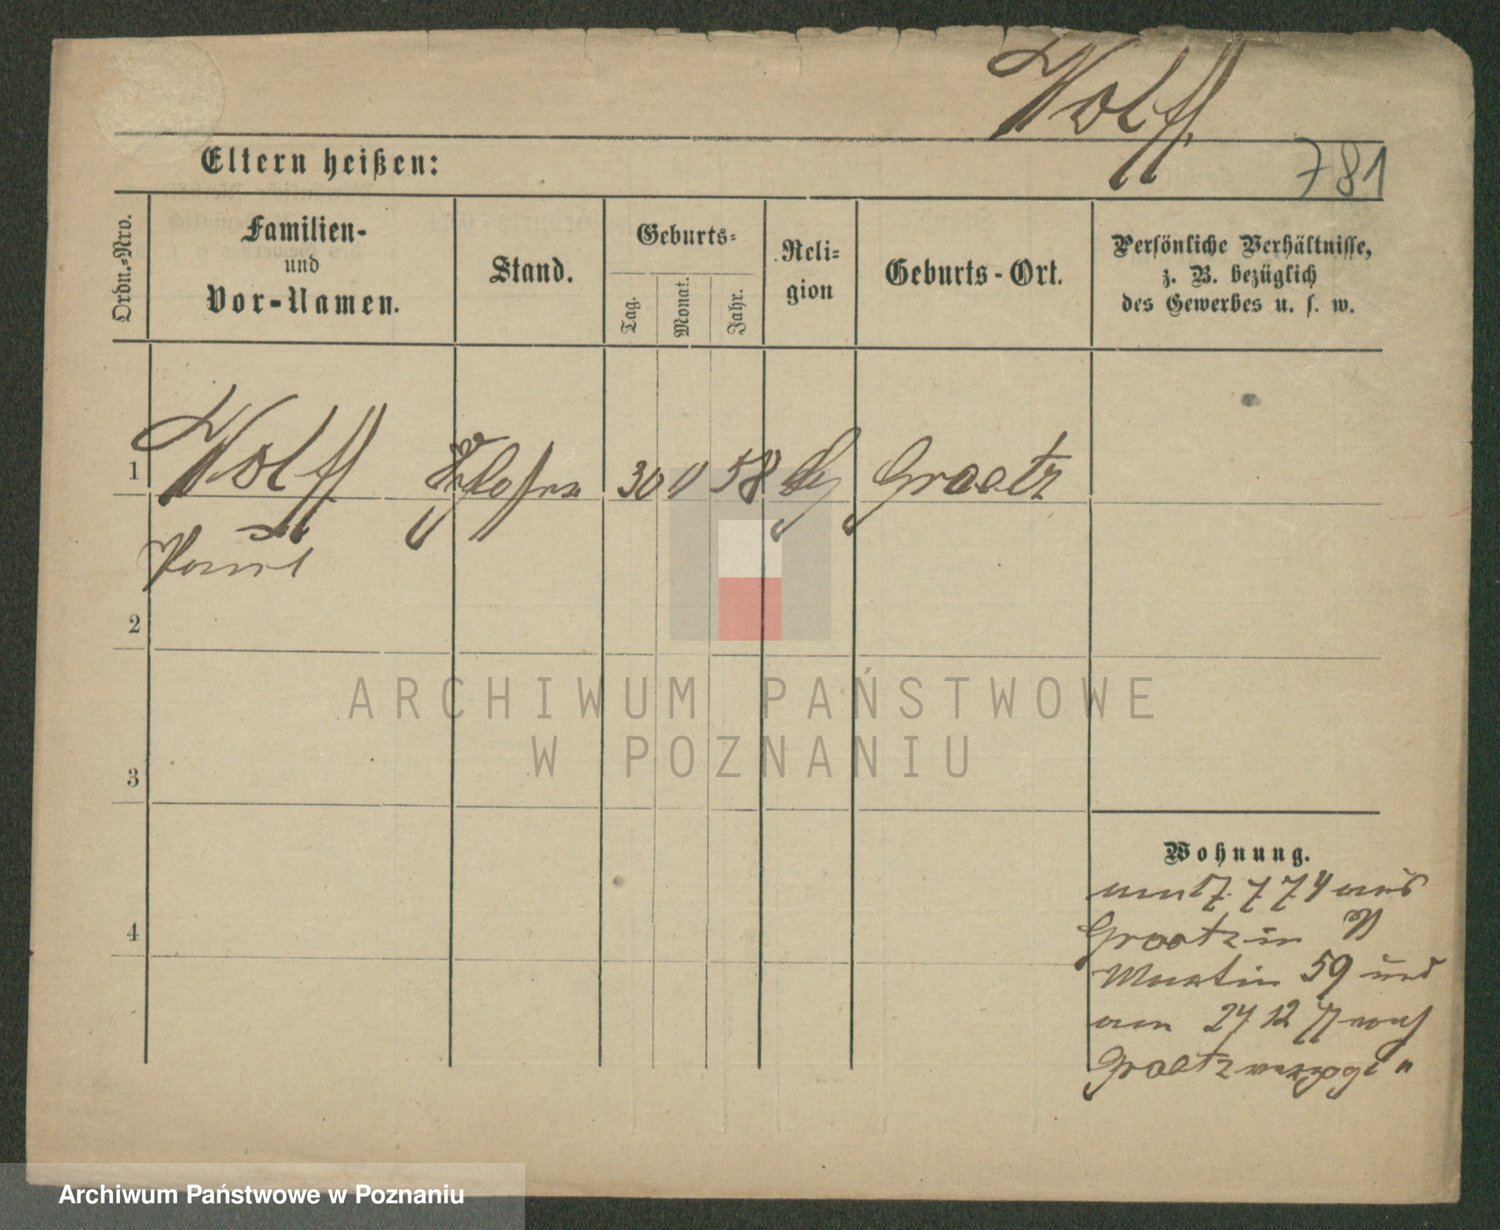 Wolff
Eltern heißen:
781
Ordn.-Nro.
Familien-
und
Vor-Namen.
Stand.
Geburts-
Tag.
Monat.
Jahr.
Reli-
gion
Geburts-Ort.
Persönliche Verhältnisse,
z. B. bezüglich
des Gewerbes u. s. w.
1
Wolff
30 11 58
Graetz
Paul
2
ARCHIWUM PAŃSTWOWE
W POZNANIU
3
Wohnung.
am 17 7 74 aus
Graetz in
Martin 59 und
am 24 12 77 nach
Graetz verzogen
4
Archiwum Państwowe w Poznaniu